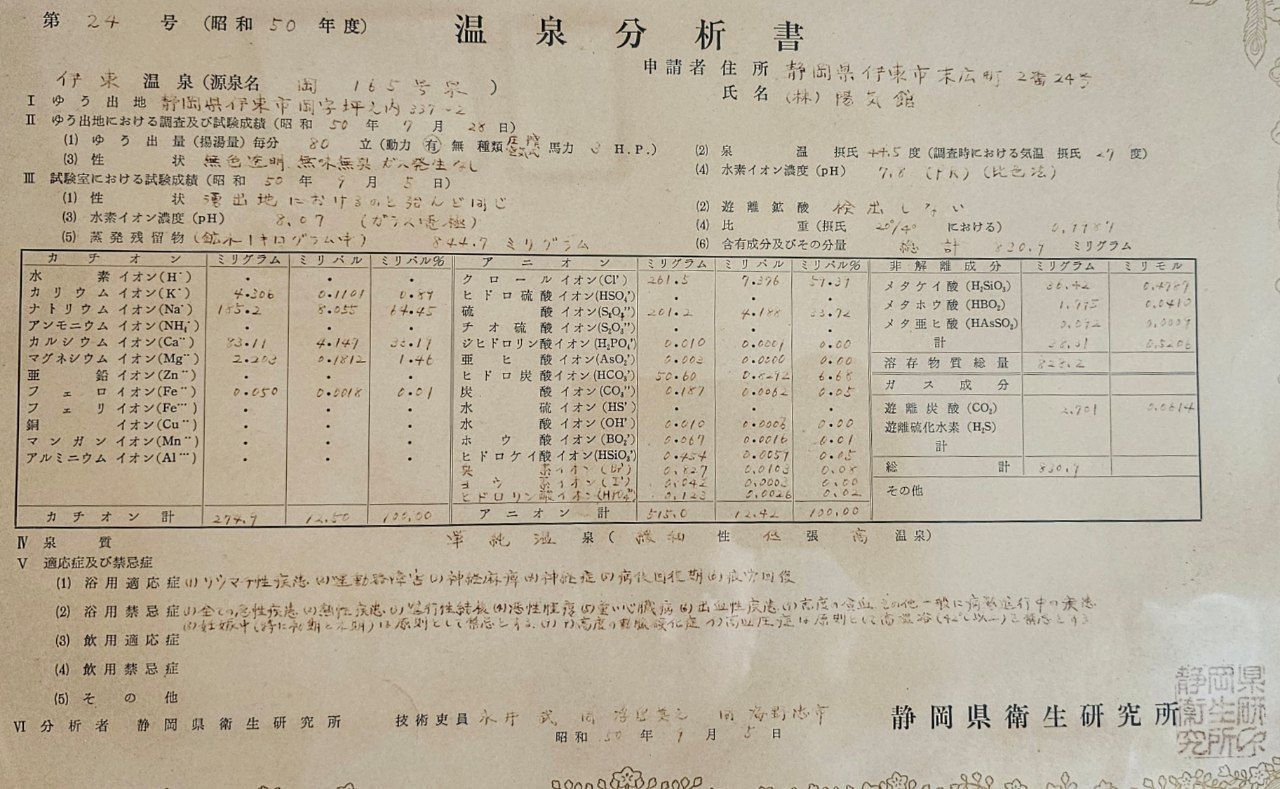 第 24 号 (昭和 50 年度) 温泉分析書
申請者 住所 静岡県伊東市末広町 2番24号
伊東 温泉 (源泉名 岡 165号泉 )
氏名 (株) 陽気館
I ゆう出地 静岡県伊東市岡字坪之内 339-2
II ゆう出地における調査及び試験成績 (昭和 50 年 7 月 28 日)
(1) ゆう出量 (揚湯量) 毎分 80 立 (動力 有 無 種類 馬力 3 H.P.)
(2) 泉温 摂氏 44.5 度 (調査時における気温 摂氏 29 度)
(3) 性状 無色透明 無味無臭 ガス発生なし
(4) 水素イオン濃度 (pH) 7.8 (PR) (比色法)
III 試験室における試験成績 (昭和 50 年 9 月 5 日)
(1) 性状 湧出地におけるのと殆んど同じ
(2) 遊離鉱酸 検出しない
(3) 水素イオン濃度 (pH) 8.07 (ガラス電極)
(4) 比重 (摂氏 20°/4° における) 0.9989
(5) 蒸発残留物 (鉱水1キログラム中) 844.7 ミリグラム
(6) 含有成分及びその分量 総計 830.9 ミリグラム
カチオン ミリグラム ミリバル ミリバル% アニオン ミリグラム ミリバル ミリバル% 非解離成分 ミリグラム ミリモル
水素イオン(H˙) ・ ・ ・ クロールイオン(Cl') 261.5 7.376 59.39 メタケイ酸 (H₂SiO₃)
カリウムイオン(K˙) 4.306 0.1101 0.89 ヒドロ硫酸イオン(HSO₄') ・ ・ ・ メタホウ酸 (HBO₂) 1.795 0.0410
ナトリウムイオン(Na˙) 185.2 8.055 64.45 硫酸イオン 201.2 4.188 33.72 メタ亜ヒ酸 (HAsSO₂) 0.092 0.0009
アンモニウムイオン(NH₄˙) ・ ・ ・ チオ硫酸イオン(S₂O₃'') ・ ・ ・ 計 38.31 0.5206
カルシウムイオン(Ca˙˙) 83.11 4.147 33.19 ジヒドロリン酸イオン(H₂PO₄') 0.010 0.0001 0.00
マグネシウムイオン(Mg˙˙) 2.203 0.1812 1.46 亜ヒ酸イオン(AsO₂') 0.003 0.0000 0.00 溶存物質総量 828.2
亜鉛イオン(Zn˙˙) ・ ・ ・ ヒドロ炭酸イオン(HCO₃') 50.60 0.8292 6.68 ガス成分
フェロイオン(Fe˙˙) 0.050 0.0018 0.01 炭酸イオン(CO₃'') 0.187 0.0062 0.05
フェリイオン(Fe˙˙˙) ・ ・ ・ 水硫イオン(HS') ・ ・ ・ 遊離炭酸 (CO₂) 2.701 0.0614
銅イオン(Cu˙˙) ・ ・ ・ 水酸イオン(OH') 0.010 0.0006 0.00 遊離硫化水素 (H₂S)
マンガンイオン(Mn˙˙) ・ ・ ・ ホウ酸イオン(BO₂') 0.067 0.0016 0.01 計
アルミニウムイオン(Al˙˙˙) ・ ・ ・ ヒドロケイ酸イオン(HSiO₃') 0.454 0.0059 0.05
臭素イオン(Br') 0.827 0.0103 0.08 総計 830.9
ヨウ素イオン(I') 0.042 0.0003 0.00 その他
ヒドロリン酸イオン(HPO₄'') 0.123 0.0026 0.02
カチオン計 274.9 12.50 100.00 アニオン計 515.0 12.42 100.00
IV 泉質 単純温泉 (緩和性低張高温泉)
V 適応症及び禁忌症
(1) 浴用適応症 (1) リウマチ性疾患 (2) 運動器障害 (3) 神経麻痺 (4) 神経症 (5) 病後回復期 (6) 疲労回復
(2) 浴用禁忌症 (1) 全ての急性疾患 (2) 熱性疾患 (3) 進行性結核 (4) 悪性腫瘍 (5) 重い心臓病 (6) 出血性疾患 (7) 高度の貧血、その他一般に病勢進行中の疾患
(8) 妊娠中(特に初期と末期)は原則として禁忌とする (9) 高度の動脈硬化症 高血圧症は原則として高温浴(42℃以上)を禁忌とする
(3) 飲用適応症
(4) 飲用禁忌症
(5) その他
VI 分析者 静岡県衛生研究所 技術吏員 静岡県衛生研究所
昭和 50 年 9 月 5 日
静岡県衛生研究所